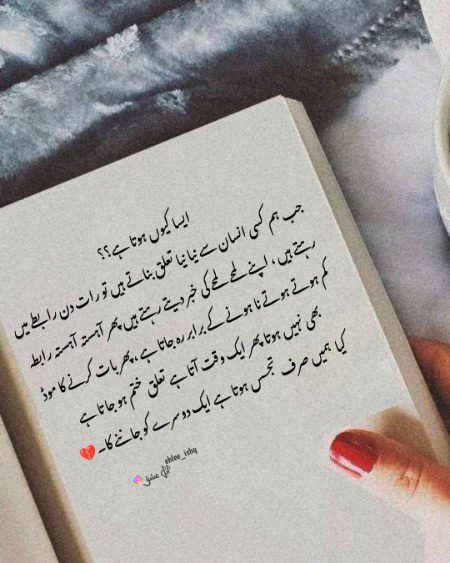 ایسا کیوں ہوتا ہے؟؟
جب ہم کسی انسان سے نیا نیا تعلق بناتے ہیں تو رات دن رابطے میں
رہتے ہیں، اپنے لمحے لمحے کی خبر دیتے رہتے ہیں پھر آہستہ آہستہ رابطہ
کم ہوتے ہوتے نا ہونے کے برابر رہ جاتا ہے، پھر بات کرنے کا موڈ
بھی نہیں ہوتا پھر ایک وقت آتا ہے تعلق ختم ہو جاتا ہے
کیا ہمیں صرف تجسس ہوتا ہے ایک دوسرے کو جاننے کا۔ 💔
ehlee_ishq
عشق